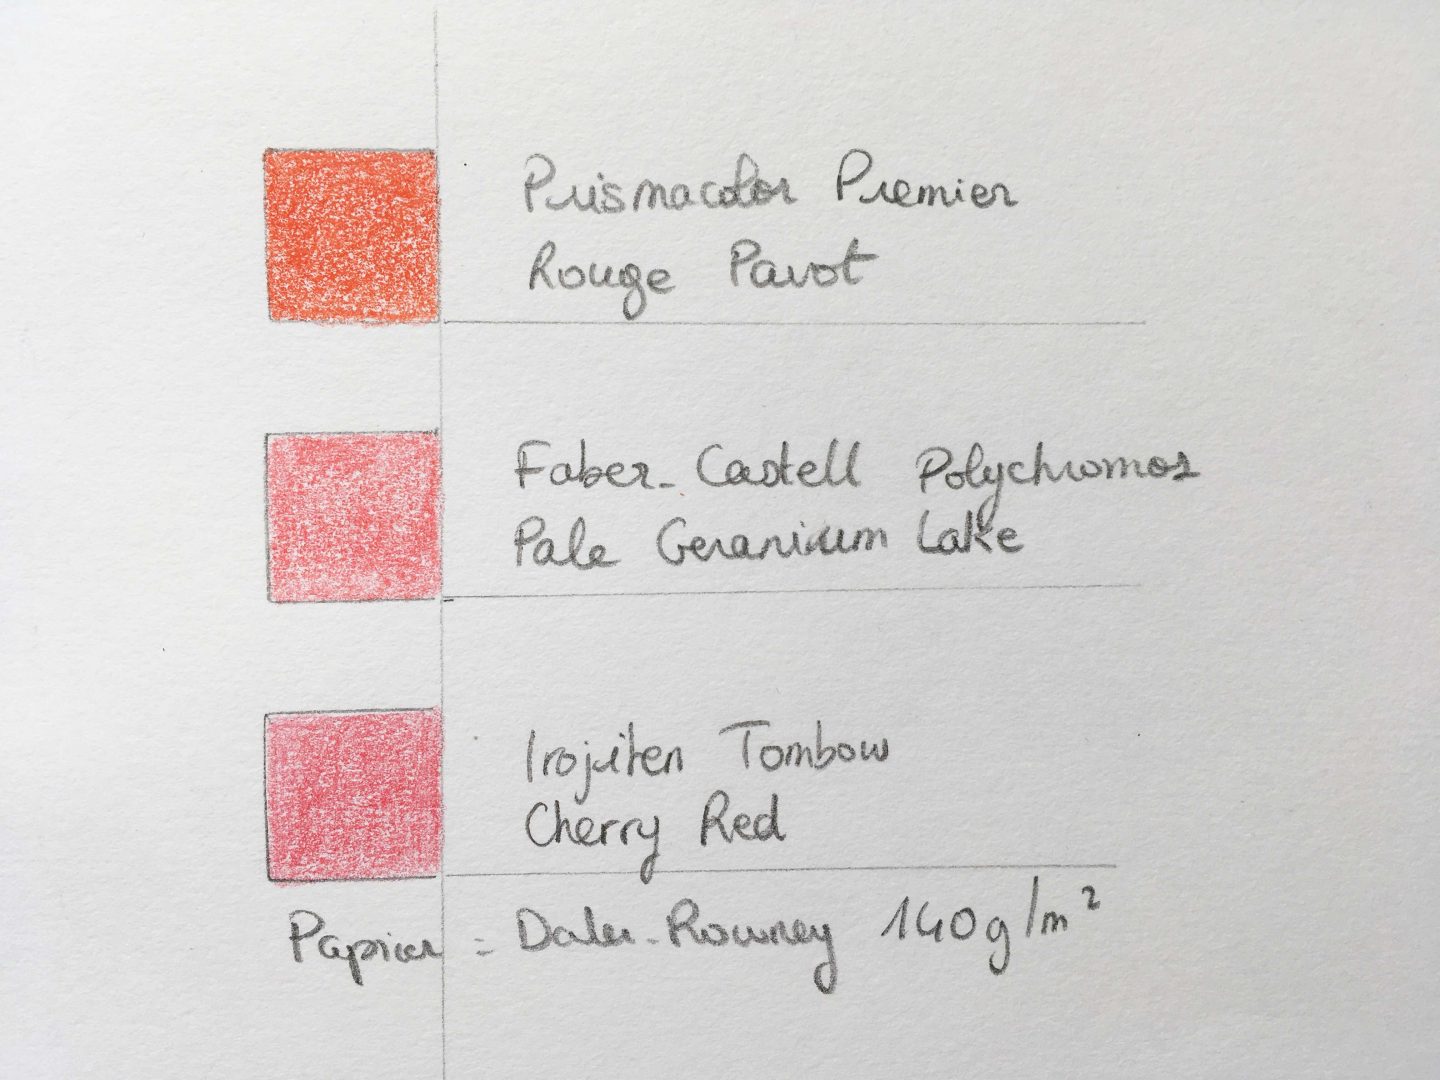 Prismacolor Premier
Rouge Pavot
Faber-Castell Polychromos
Pale Geranium Lake
Irojiten Tombow
Cherry Red
Papier = Daler-Rowney 140g/m²